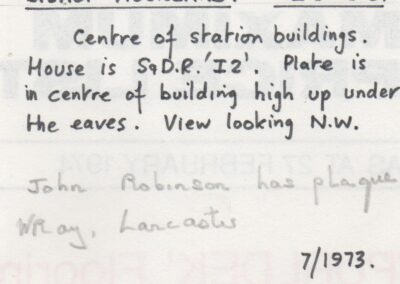 Centre of station buildings.
House is S&D.R. 'I2'. Plate is
in centre of building high up under
the eaves. View looking N.W.
John Robinson has plaque
WRay, Lancaster
7/1973.